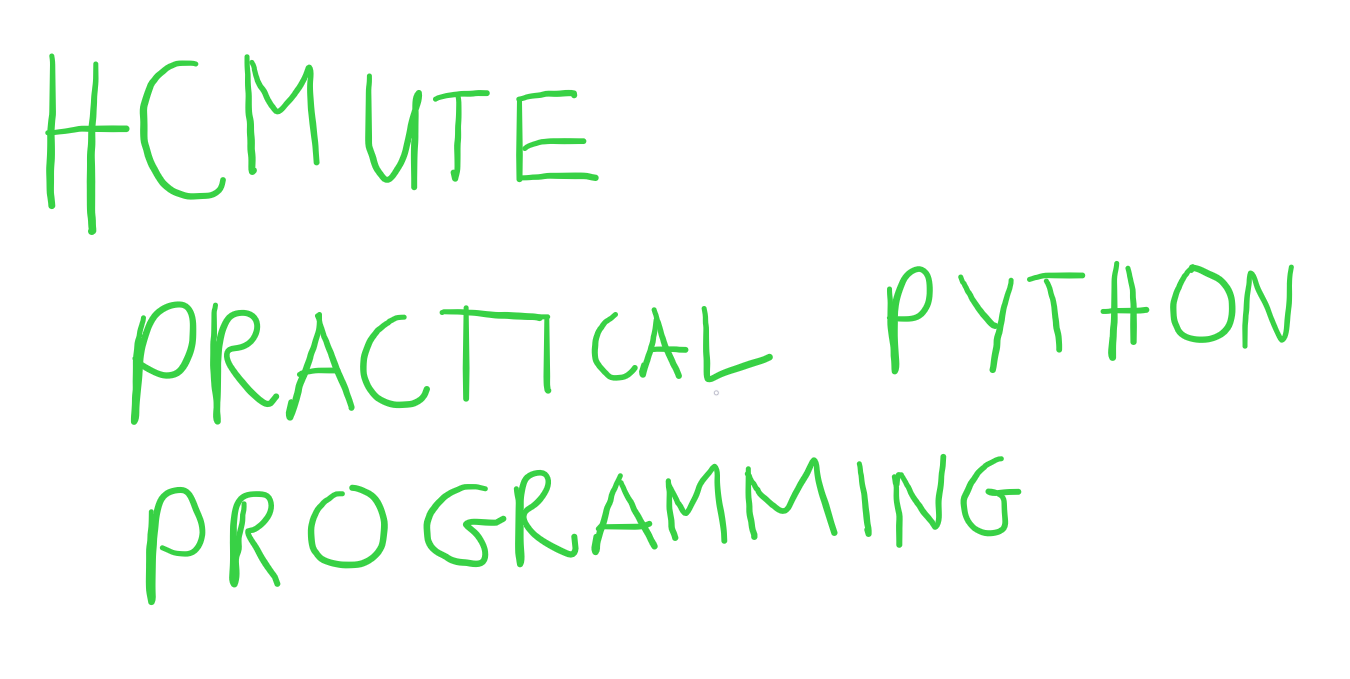 HCMUTE
PRACTICAL PYTHON
PROGRAMMING